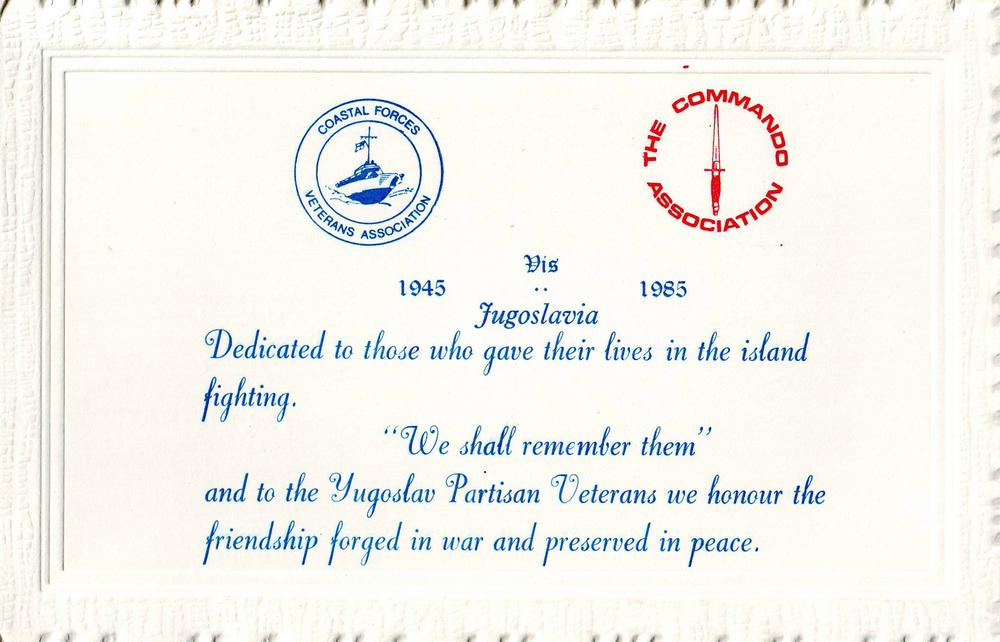 COASTAL FORCES
VETERANS ASSOCIATION
THE COMMANDO
ASSOCIATION
Vis
1945 .. 1985
Jugoslavia
Dedicated to those who gave their lives in the island
fighting.
“We shall remember them”
and to the Yugoslav Partisan Veterans we honour the
friendship forged in war and preserved in peace.